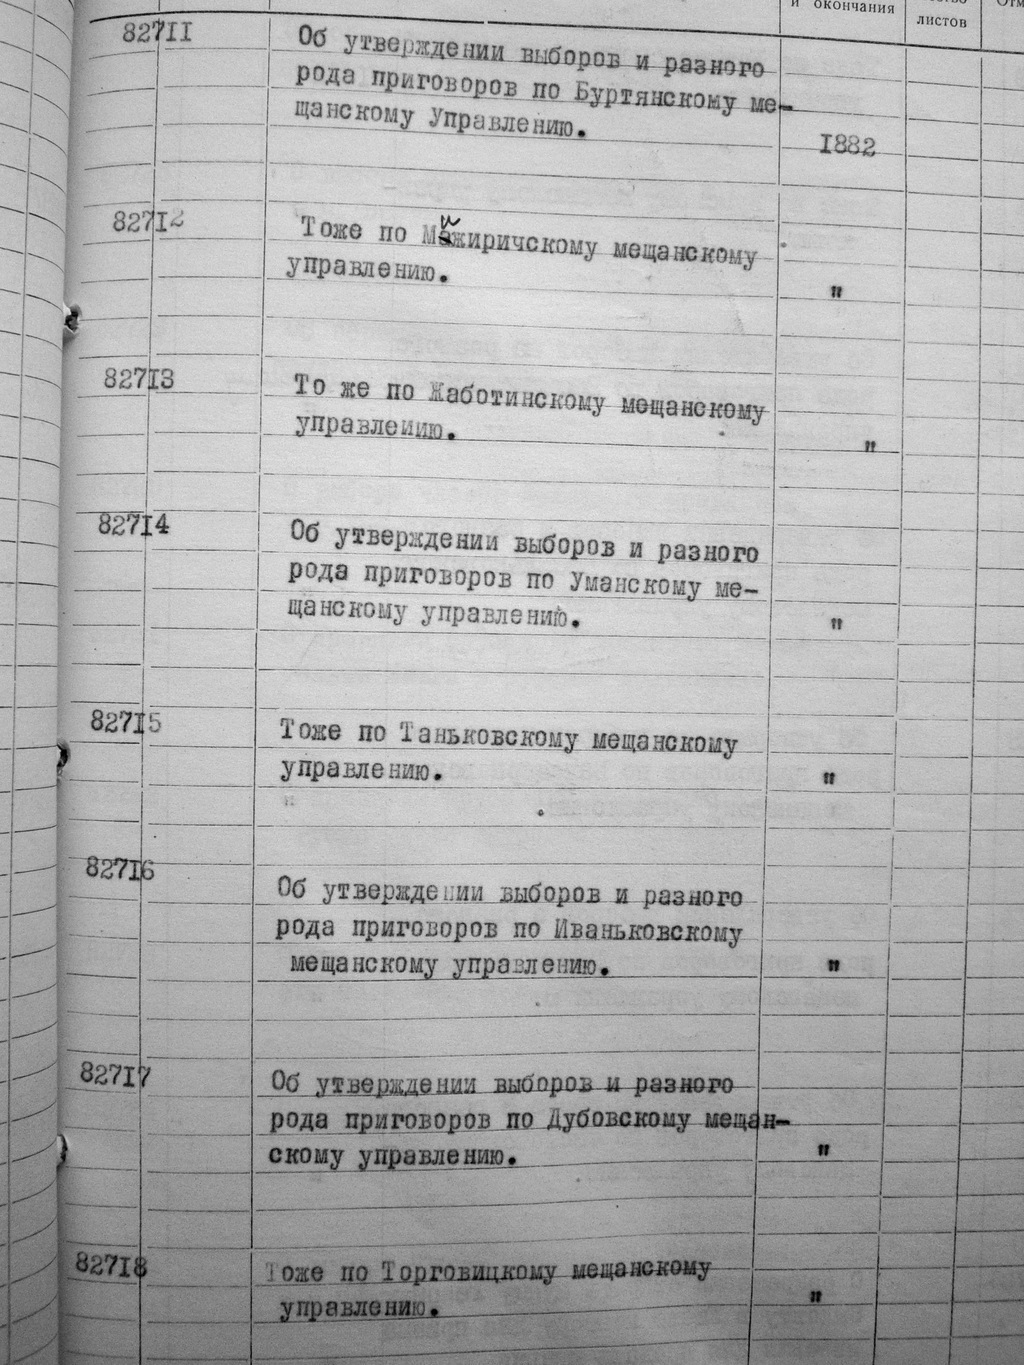 и окончания
листов
82711
Об утверждении выборов и разного
рода приговоров по Буртянскому ме-
щанскому Управлению.
1882
82712
Тоже по Мижиричскому мещанскому
управлению.
"
82713
То же по Жаботинскому мещанскому
управлению.
"
82714
Об утверждении выборов и разного
рода приговоров по Уманскому ме-
щанскому управлению.
"
82715
Тоже по Таньковскому мещанскому
управлению.
"
82716
Об утверждении выборов и разного
рода приговоров по Иваньковскому
мещанскому управлению.
"
82717
Об утверждении выборов и разного
рода приговоров по Дубовскому мещан-
скому управлению.
"
82718
Тоже по Торговицкому мещанскому
управлению.
"